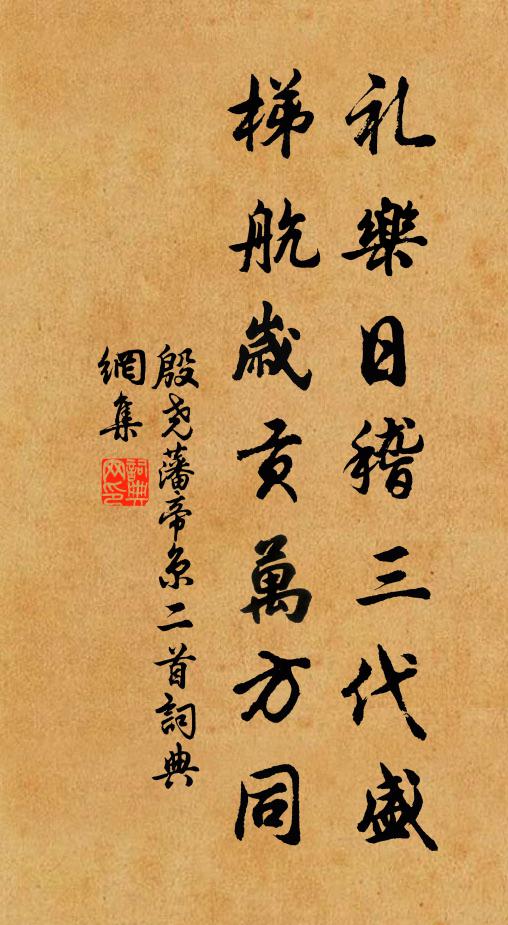 礼樂日稽三代盛
梯航歲貢萬方同
殷尧藩帝京二首詞典
網集
詞典
网印